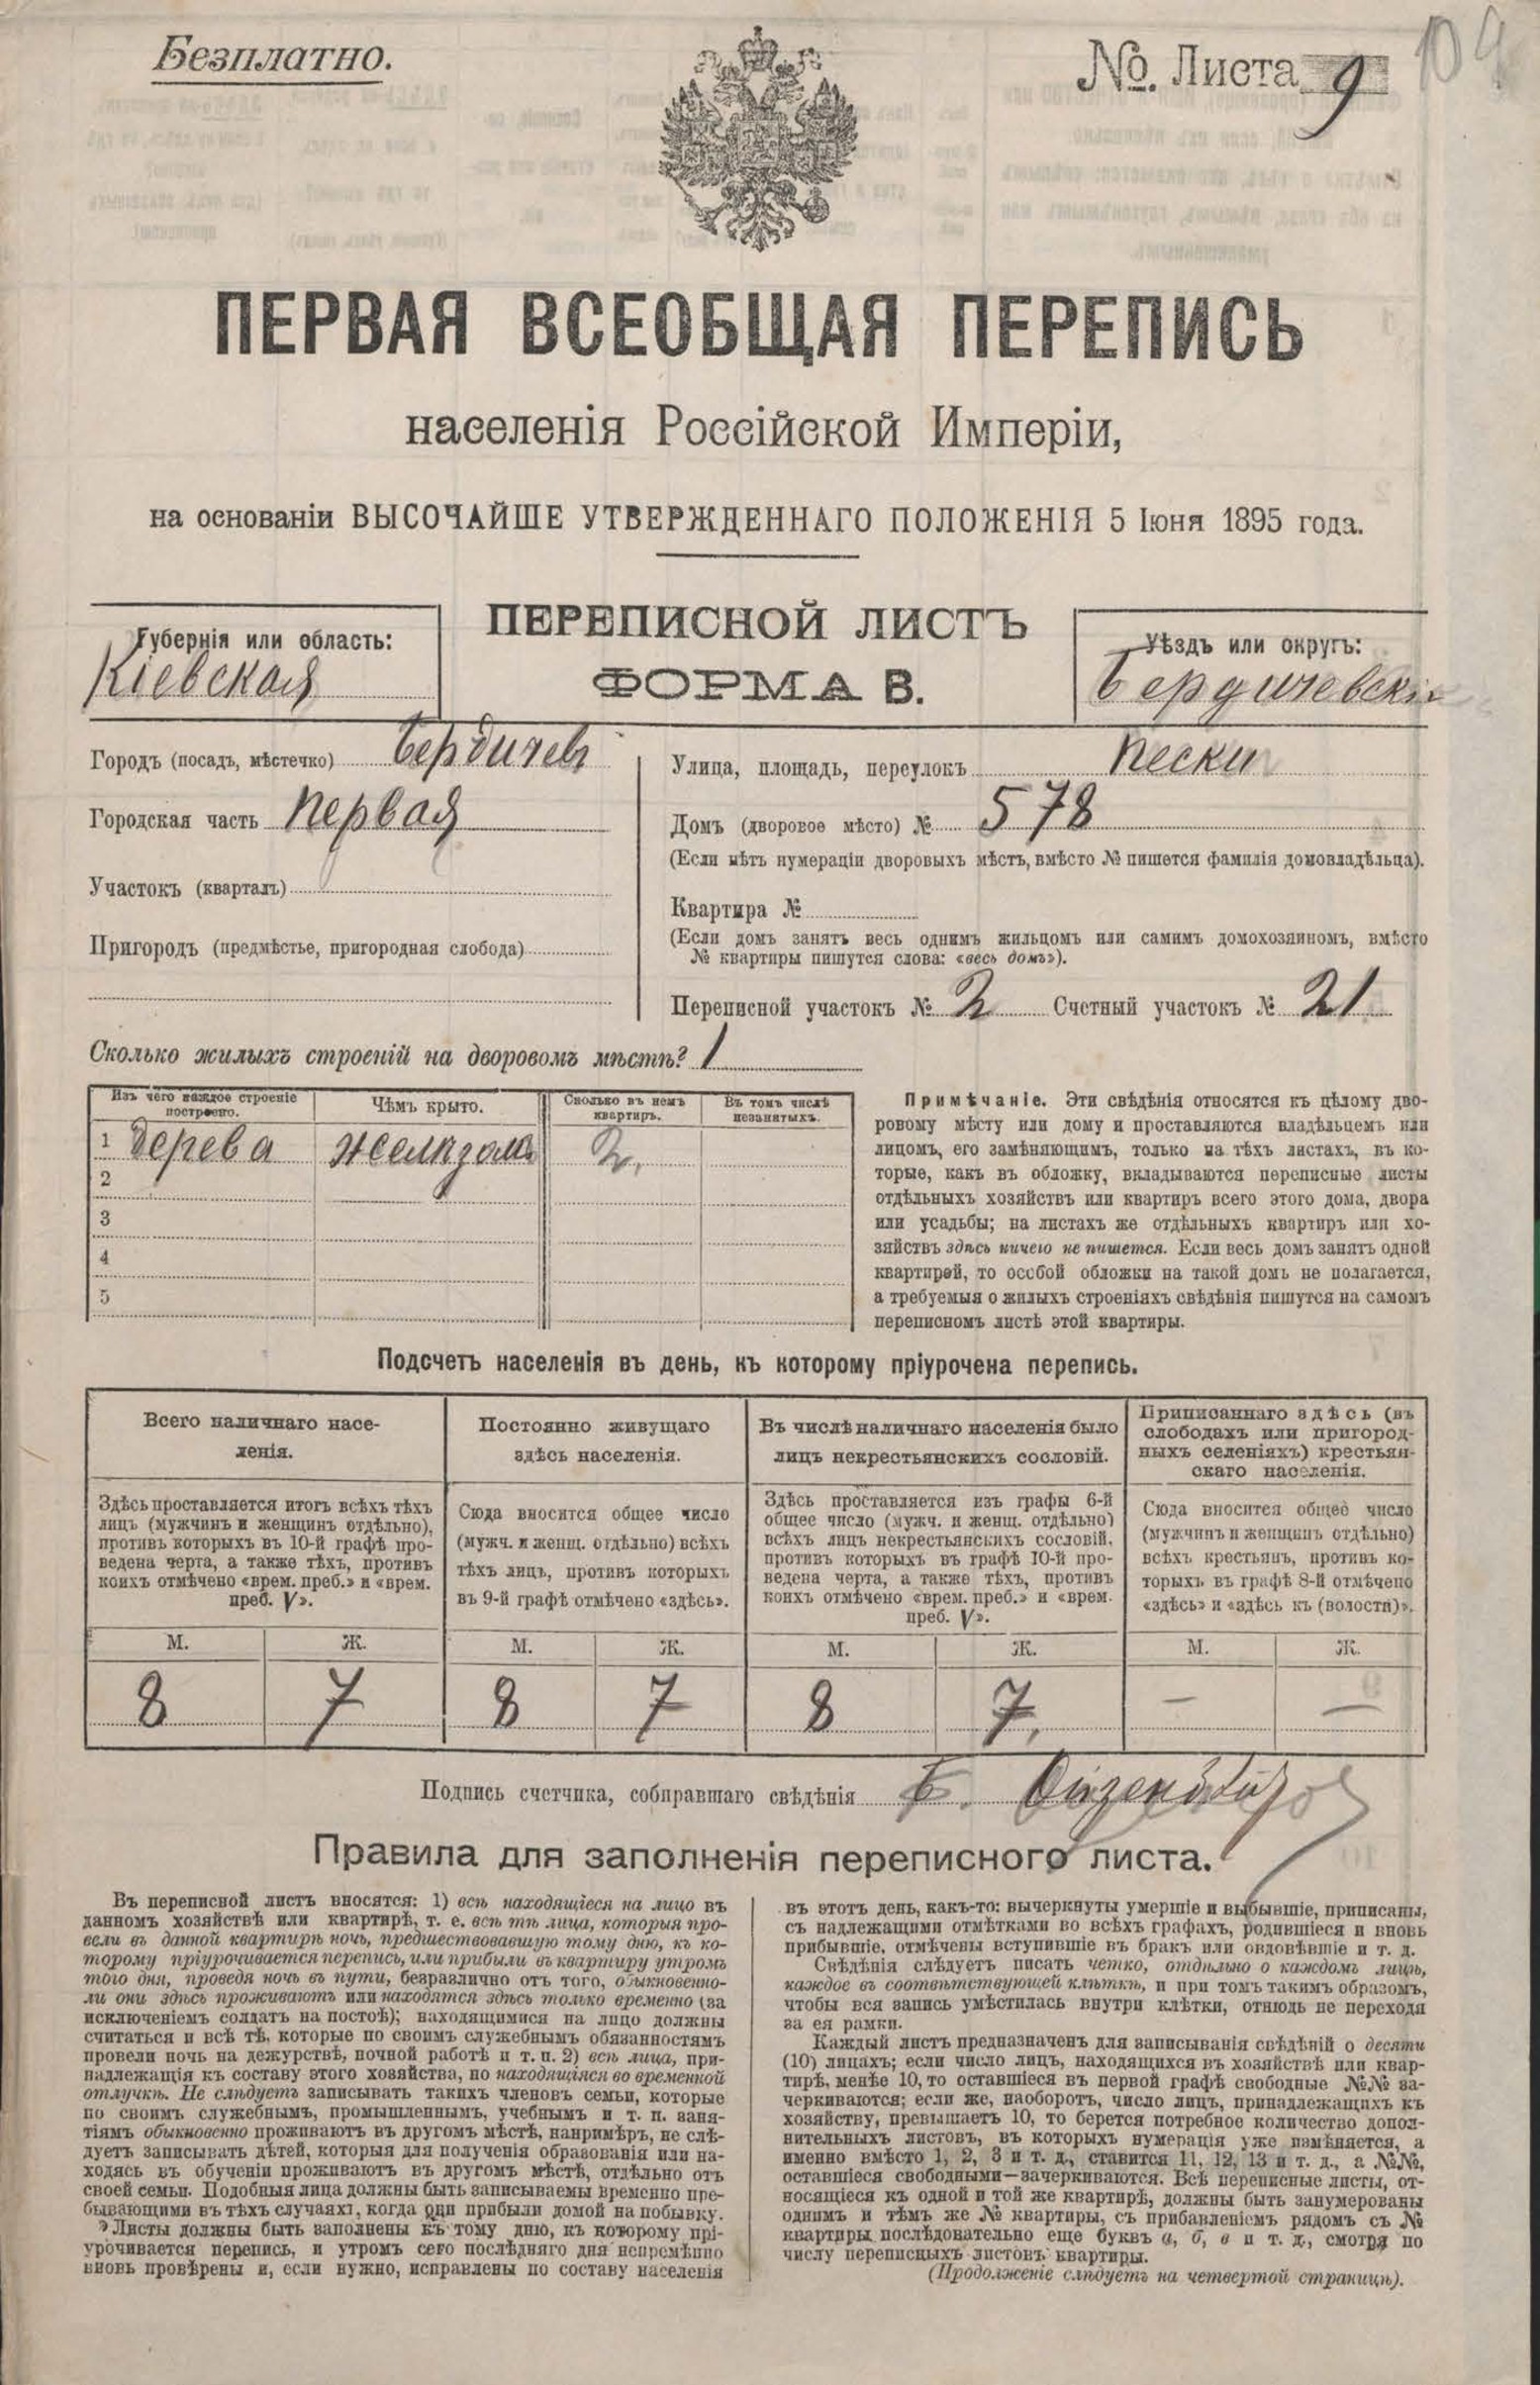 Безплатно.
№. Листа 9
104
ПЕРВАЯ ВСЕОБЩАЯ ПЕРЕПИСЬ
населенія Россійской Имперіи,
на основаніи ВЫСОЧАЙШЕ УТВЕРЖДЕННАГО ПОЛОЖЕНІЯ 5 Іюня 1895 года.
ПЕРЕПИСНОЙ ЛИСТЪ
ФОРМА В.
Губернія или область:
Кіевская
Уѣздъ или округъ:
Бердичевскій
Городъ (посадъ, мѣстечко) Бердичевъ
Городская часть Первая
Участокъ (кварталъ)
Пригородъ (предмѣстье, пригородная слобода)
Улица, площадь, переулокъ Пески
Домъ (дворовое мѣсто) № 578
(Если нѣтъ нумераціи дворовыхъ мѣстъ, вмѣсто № пишется фамилія домовладѣльца).
Квартира №
(Если домъ занятъ весь однимъ жильцомъ или самимъ домохозяиномъ, вмѣсто
№ квартиры пишутся слова: «весь домъ»).
Переписной участокъ № 2 Счетный участокъ № 21
Сколько жилыхъ строеній на дворовомъ мѣстѣ? 1
Изъ чего каждое строеніе
построено.
Чѣмъ крыто.
Сколько въ немъ
квартиръ.
Въ томъ числѣ
незанятыхъ.
1 Дерева желѣзомъ 2,
2
3
4
5
Примѣчаніе. Эти свѣдѣнія относятся къ цѣлому дво-
ровому мѣсту или дому и проставляются владѣльцемъ или
лицомъ, его замѣняющимъ, только на тѣхъ листахъ, въ ко-
торые, какъ въ обложку, вкладываются переписные листы
отдѣльныхъ хозяйствъ или квартиръ всего этого дома, двора
или усадьбы; на листахъ же отдѣльныхъ квартиръ или хо-
зяйствъ здѣсь ничего не пишется. Если весь домъ занятъ одной
квартирой, то особой обложки на такой домъ не полагается,
а требуемыя о жилыхъ строеніяхъ свѣдѣнія пишутся на самомъ
переписномъ листѣ этой квартиры.
Подсчетъ населенія въ день, къ которому пріурочена перепись.
Всего наличнаго насе-
ленія.
Постоянно живущаго
здѣсь населенія.
Въ числѣ наличнаго населенія было
лицъ некрестьянскихъ сословій.
Приписаннаго здѣсь (въ
слободахъ или пригород-
ныхъ селеніяхъ) крестьян-
скаго населенія.
Здѣсь проставляется итогъ всѣхъ тѣхъ
лицъ (мужчинъ и женщинъ отдѣльно),
противъ которыхъ въ 10-й графѣ про-
ведена черта, а также тѣхъ, противъ
коихъ отмѣчено «врем. преб.» и «врем.
преб. V».
Сюда вносится общее число
(мужч. и женщ. отдѣльно) всѣхъ
тѣхъ лицъ, противъ которыхъ
въ 9-й графѣ отмѣчено «здѣсь».
Здѣсь проставляется изъ графы 6-й
общее число (мужч. и женщ. отдѣльно)
всѣхъ лицъ некрестьянскихъ сословій,
противъ которыхъ въ графѣ 10-й про-
ведена черта, а также тѣхъ, противъ
коихъ отмѣчено «врем. преб.» и «врем.
преб. V».
Сюда вносится общее число
(мужчинъ и женщинъ отдѣльно)
всѣхъ крестьянъ, противъ ко-
торыхъ въ графѣ 8-й отмѣчено
«здѣсь» и «здѣсь къ (волости)».
М. Ж. М. Ж. М. Ж. М. Ж.
8 7 8 7 8 7. — —
Подпись счетчика, собиравшаго свѣдѣнія Б.
Правила для заполненія переписного листа.
Въ переписной листъ вносятся: 1) всѣ находящіеся на лицо въ
данномъ хозяйствѣ или квартирѣ, т. е. всѣ тѣ лица, которыя про-
вели въ данной квартирѣ ночь, предшествовавшую тому дню, къ ко-
торому пріурочивается перепись, или прибыли въ квартиру утромъ
того дня, проведя ночь въ пути, безразлично отъ того, обыкновенно-
ли они здѣсь проживаютъ или находятся здѣсь только временно (за
исключеніемъ солдатъ на постоѣ); находящимися на лицо должны
считаться и всѣ тѣ, которые по своимъ служебнымъ обязанностямъ
провели ночь на дежурствѣ, ночной работѣ и т. п. 2) всѣ лица, при-
надлежащія къ составу этого хозяйства, но находящіяся во временной
отлучкѣ. Не слѣдуетъ записывать такихъ членовъ семьи, которые
по своимъ служебнымъ, промышленнымъ, учебнымъ и т. п. заня-
тіямъ обыкновенно проживаютъ въ другомъ мѣстѣ, напримѣръ, не слѣ-
дуетъ записывать дѣтей, которыя для полученія образованія или на-
ходясь въ обученіи проживаютъ въ другомъ мѣстѣ, отдѣльно отъ
своей семьи. Подобныя лица должны быть записываемы временно пре-
бывающими въ тѣхъ случаяхъ, когда они прибыли домой на побывку.
Листы должны быть заполнены къ тому дню, къ которому прі-
урочивается перепись, и утромъ сего послѣдняго дня непремѣнно
вновь провѣрены и, если нужно, исправлены по составу населенія
въ этотъ день, какъ-то: вычеркнуты умершіе и выбывшіе, приписаны,
съ надлежащими отмѣтками во всѣхъ графахъ, родившіеся и вновь
прибывшіе, отмѣчены вступившіе въ бракъ или овдовѣвшіе и т. д.
Свѣдѣнія слѣдуетъ писать четко, отдѣльно о каждомъ лицѣ,
каждое въ соотвѣтствующей клѣткѣ, и при томъ такимъ образомъ,
чтобы вся запись умѣстилась внутри клѣтки, отнюдь не переходя
за ея рамки.
Каждый листъ предназначенъ для записыванія свѣдѣній о десяти
(10) лицахъ; если число лицъ, находящихся въ хозяйствѣ или квар-
тирѣ, менѣе 10, то оставшіеся въ первой графѣ свободные №№ за-
черкиваются; если же, наоборотъ, число лицъ, принадлежащихъ къ
хозяйству, превышаетъ 10, то берется потребное количество допол-
нительныхъ листовъ, въ которыхъ нумерація уже измѣняется, а
именно вмѣсто 1, 2, 3 и т. д., ставится 11, 12, 13 и т. д., а №№,
оставшіеся свободными—зачеркиваются. Всѣ переписные листы, от-
носящіеся къ одной и той же квартирѣ, должны быть занумерованы
однимъ и тѣмъ же № квартиры, съ прибавленіемъ рядомъ съ №
квартиры послѣдовательно еще буквъ а, б, в и т. д., смотря по
числу переписныхъ листовъ квартиры.
(Продолженіе слѣдуетъ на четвертой страницѣ).